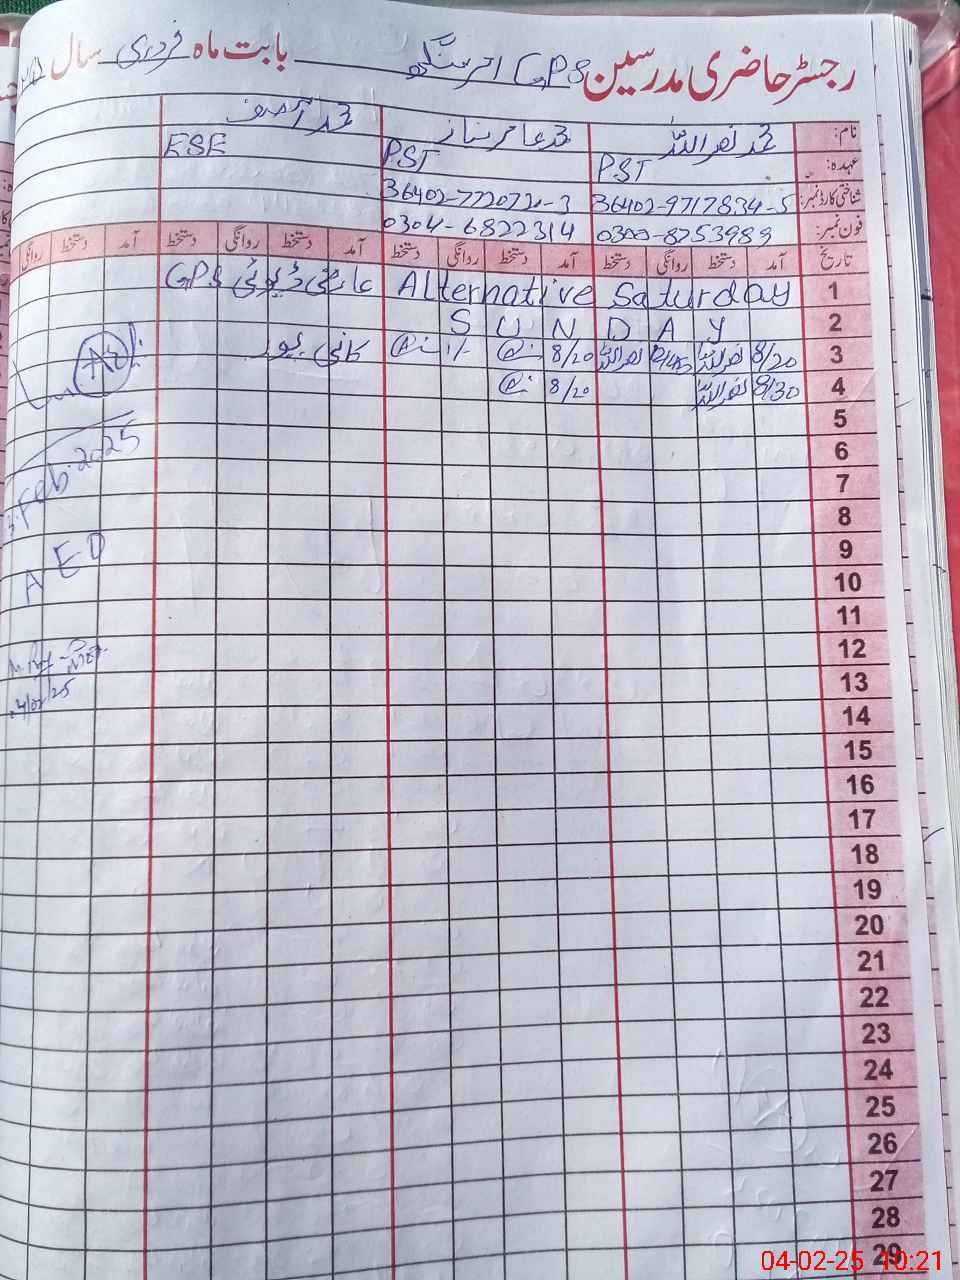 رجسٹر حاضری مدرسین GPS اتر سنگھ بابت ماہ فروری سال
نام: محمد نصراللہ محمد عامر شہناز محمد آصف
عہدہ: PST PST ESE
شناختی کارڈ نمبر: 36402-9717834-5 36402-7720721-3
فون نمبر: 0300-8753989 0304-6822314
تاریخ آمد دستخط روانگی دستخط آمد دستخط روانگی دستخط آمد دستخط روانگی دستخط آمد دستخط روانگی
1 Alternative Saturday عارضی ڈیوٹی GPS
2 S U N D A Y
3 8/20 نصراللہ نصراللہ 8/20
4 8/30 نصراللہ 8/20
5
6
7
8
9
10
11
12
13
14
15
16
17
18
19
20
21
22
23
24
25
26
27
28
29
3-Feb-2025
A E O
04/02/25
04-02-25 10:21